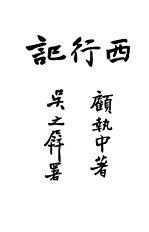 西行記
顧執中著
吳之屏署